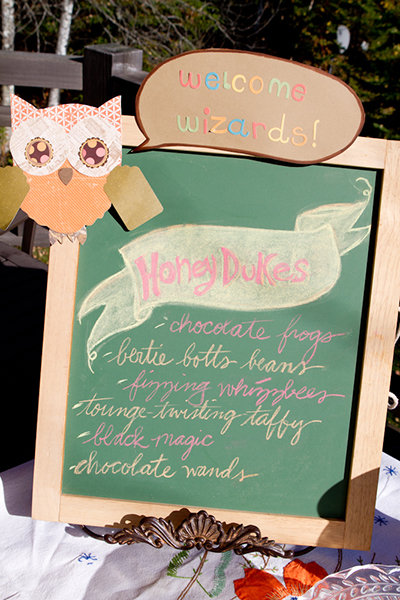 welcome
wizards!
Honey Dukes
- chocolate frogs
- bertie botts beans
- fizzing whizzbees
- tounge-twisting taffy
- black magic
- chocolate wands